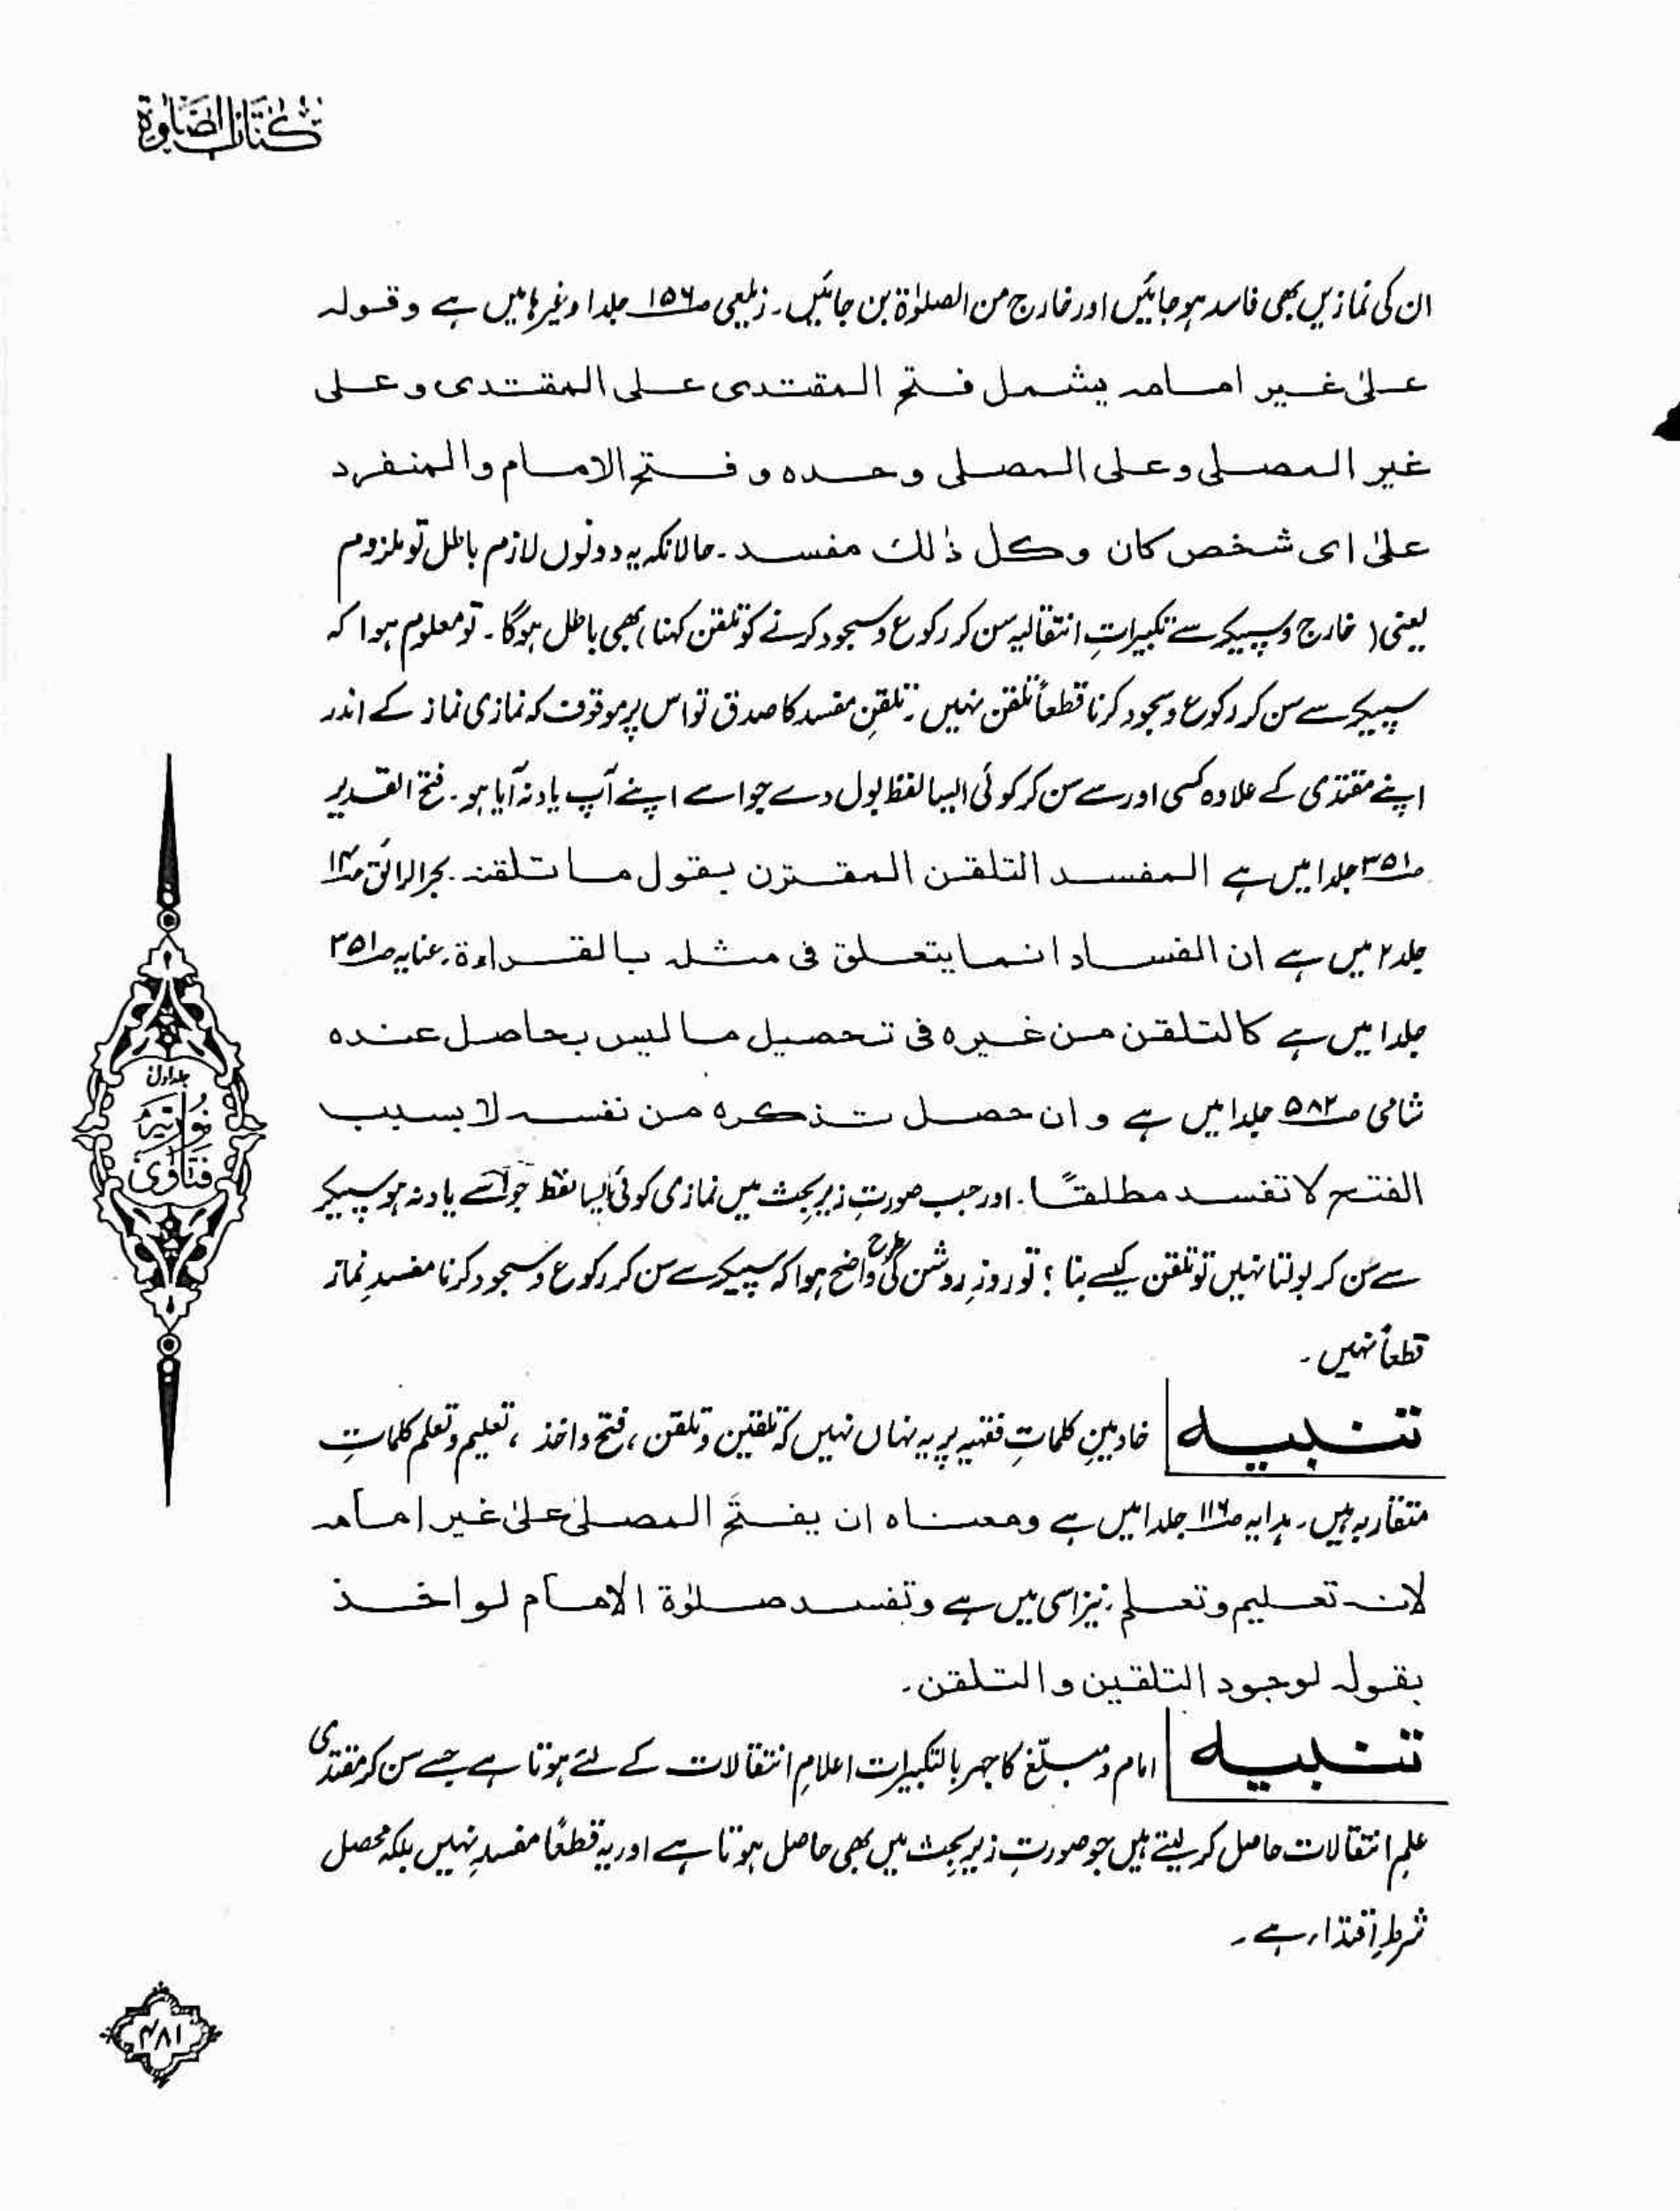 كتاب الصلوة
ان کی نمازیں بھی فاسد ہو جائیں اور خارج من الصلوٰۃ بن جائیں۔ زیلعی صـ۱۵۶ جلد ۱ وغیرہا میں ہے وقولہ
علیٰ غیر امامہ یشمل فتح المقتدی علی المقتدی وعلی
غیر المصلی وعلی المصلی وحدہ و فتح الامام والمنفرد
علیٰ ای شخص کان وکل ذٰلک مفسد۔ حالانکہ یہ دونوں لازم باطل تو ملزوم
یعنی (خارج و سپیکر سے تکبیراتِ انتقالیہ سن کر رکوع و سجود کرنے کو تلقن کہنا) بھی باطل ہوگا۔ تو معلوم ہوا کہ
سپیکر سے سن کر رکوع و سجود کرنا قطعاً تلقن نہیں۔ تلقنِ مفسد کا صدق تو اس پر موقوف کہ نمازی نماز کے اندر
اپنے مقتدی کے علاوہ کسی اور سے سن کر کوئی ایسا لفظ بول دے جو اسے اپنے آپ یاد نہ آیا ہو۔ فتح القدیر
صـ۳۵۱ جلد ۱ میں ہے المفسد التلقن المقترن بقول ما تلقنہ۔ بحرالرائق
جلد ۲ میں ہے ان الفساد انما یتعلق فی مثلہ بالقراءۃ۔ عنایہ صـ۳۵۱
جلد ۱ میں ہے کالتلقن من غیرہ فی تحصیل ما لیس بحاصل عندہ
شامی صـ۵۸۲ جلد ۱ میں ہے وان حصل تذکرہ من نفسہ لا بسبب
الفتح لا تفسد مطلقًا۔ اور جب صورتِ زیرِ بحث میں نمازی کوئی ایسا لفظ جو اُسے یاد نہ ہو سپیکر
سے سُن کر بولتا نہیں تو تلقن کیسے بنا؟ تو روزِ روشن کی طرح واضح ہوا کہ سپیکر سے سُن کر رکوع و سجود کرنا مفسدِ نماز
قطعاً نہیں۔
تنبیہ خادمینِ کلماتِ فقہیہ پر یہ نہاں نہیں کہ تلقین و تلقن، فتح و اخذ، تعلیم و تعلم کلماتِ
متقاربہ ہیں۔ ہدایہ صـ۱۱۶ جلد ۱ میں ہے ومعناہ ان یفتح المصلیٰ علیٰ غیر امامہ
لانہ تعلیم و تعلم۔ نیز اسی میں ہے وتفسد صلوٰۃ الامام لو اخذ
بقولہ لوجود التلقین والتلقن۔
تنبیہ امام و مبلّغ کا جہر بالتکبیرات اعلامِ انتقالات کے لئے ہوتا ہے جسے سن کر مقتدی
علمِ انتقالات حاصل کر لیتے ہیں جو صورتِ زیرِ بحث میں بھی حاصل ہوتا ہے اور یہ قطعًا مفسد نہیں بلکہ محصل
شرطِ اقتداء ہے۔
جلد اول
فتاویٰ نوریہ
۴۸۱